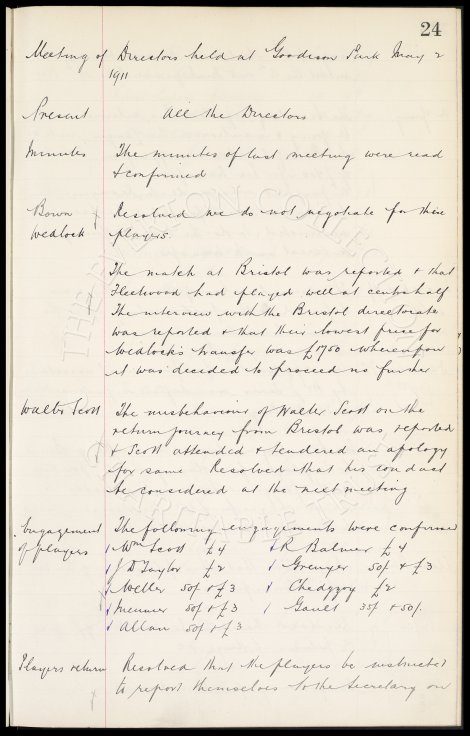 24
Meeting of Directors held at Goodison Park May 2
1911
Present All the Directors
Minutes The minutes of last meeting were read
& confirmed
Bown & Resolved we do not negotiate for these
Wedlock players.
The match at Bristol was reported & that
Fleetwood had played well at centre half
The interview with the Bristol directorate
was reported & that their lowest price for
Wedlock's transfer was £1750 whereupon
it was decided to proceed no further
Walter Scott The misbehaviour of Walter Scott on the
return journey from Bristol was reported
& Scott attended & tendered an apology
for same Resolved that his conduct
be considered at the next meeting
Engagement The following engagements were confirmed
of players Wm Scott £4 R Balmer £4
J D Taylor £2 Grenyer 50/- & £3
Weller 50/- & £3 Chedgzoy £2
Meunier 50/- & £3 Gault 35/- & 50/-
Allan 50/- & £3
Players return Resolved that the players be instructed
to report themselves to the Secretary on
THE EVERTON COLLECTION